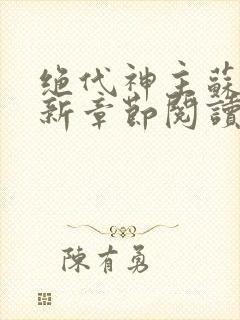 绝代神主蘇
新章節閱讀
陳有勇